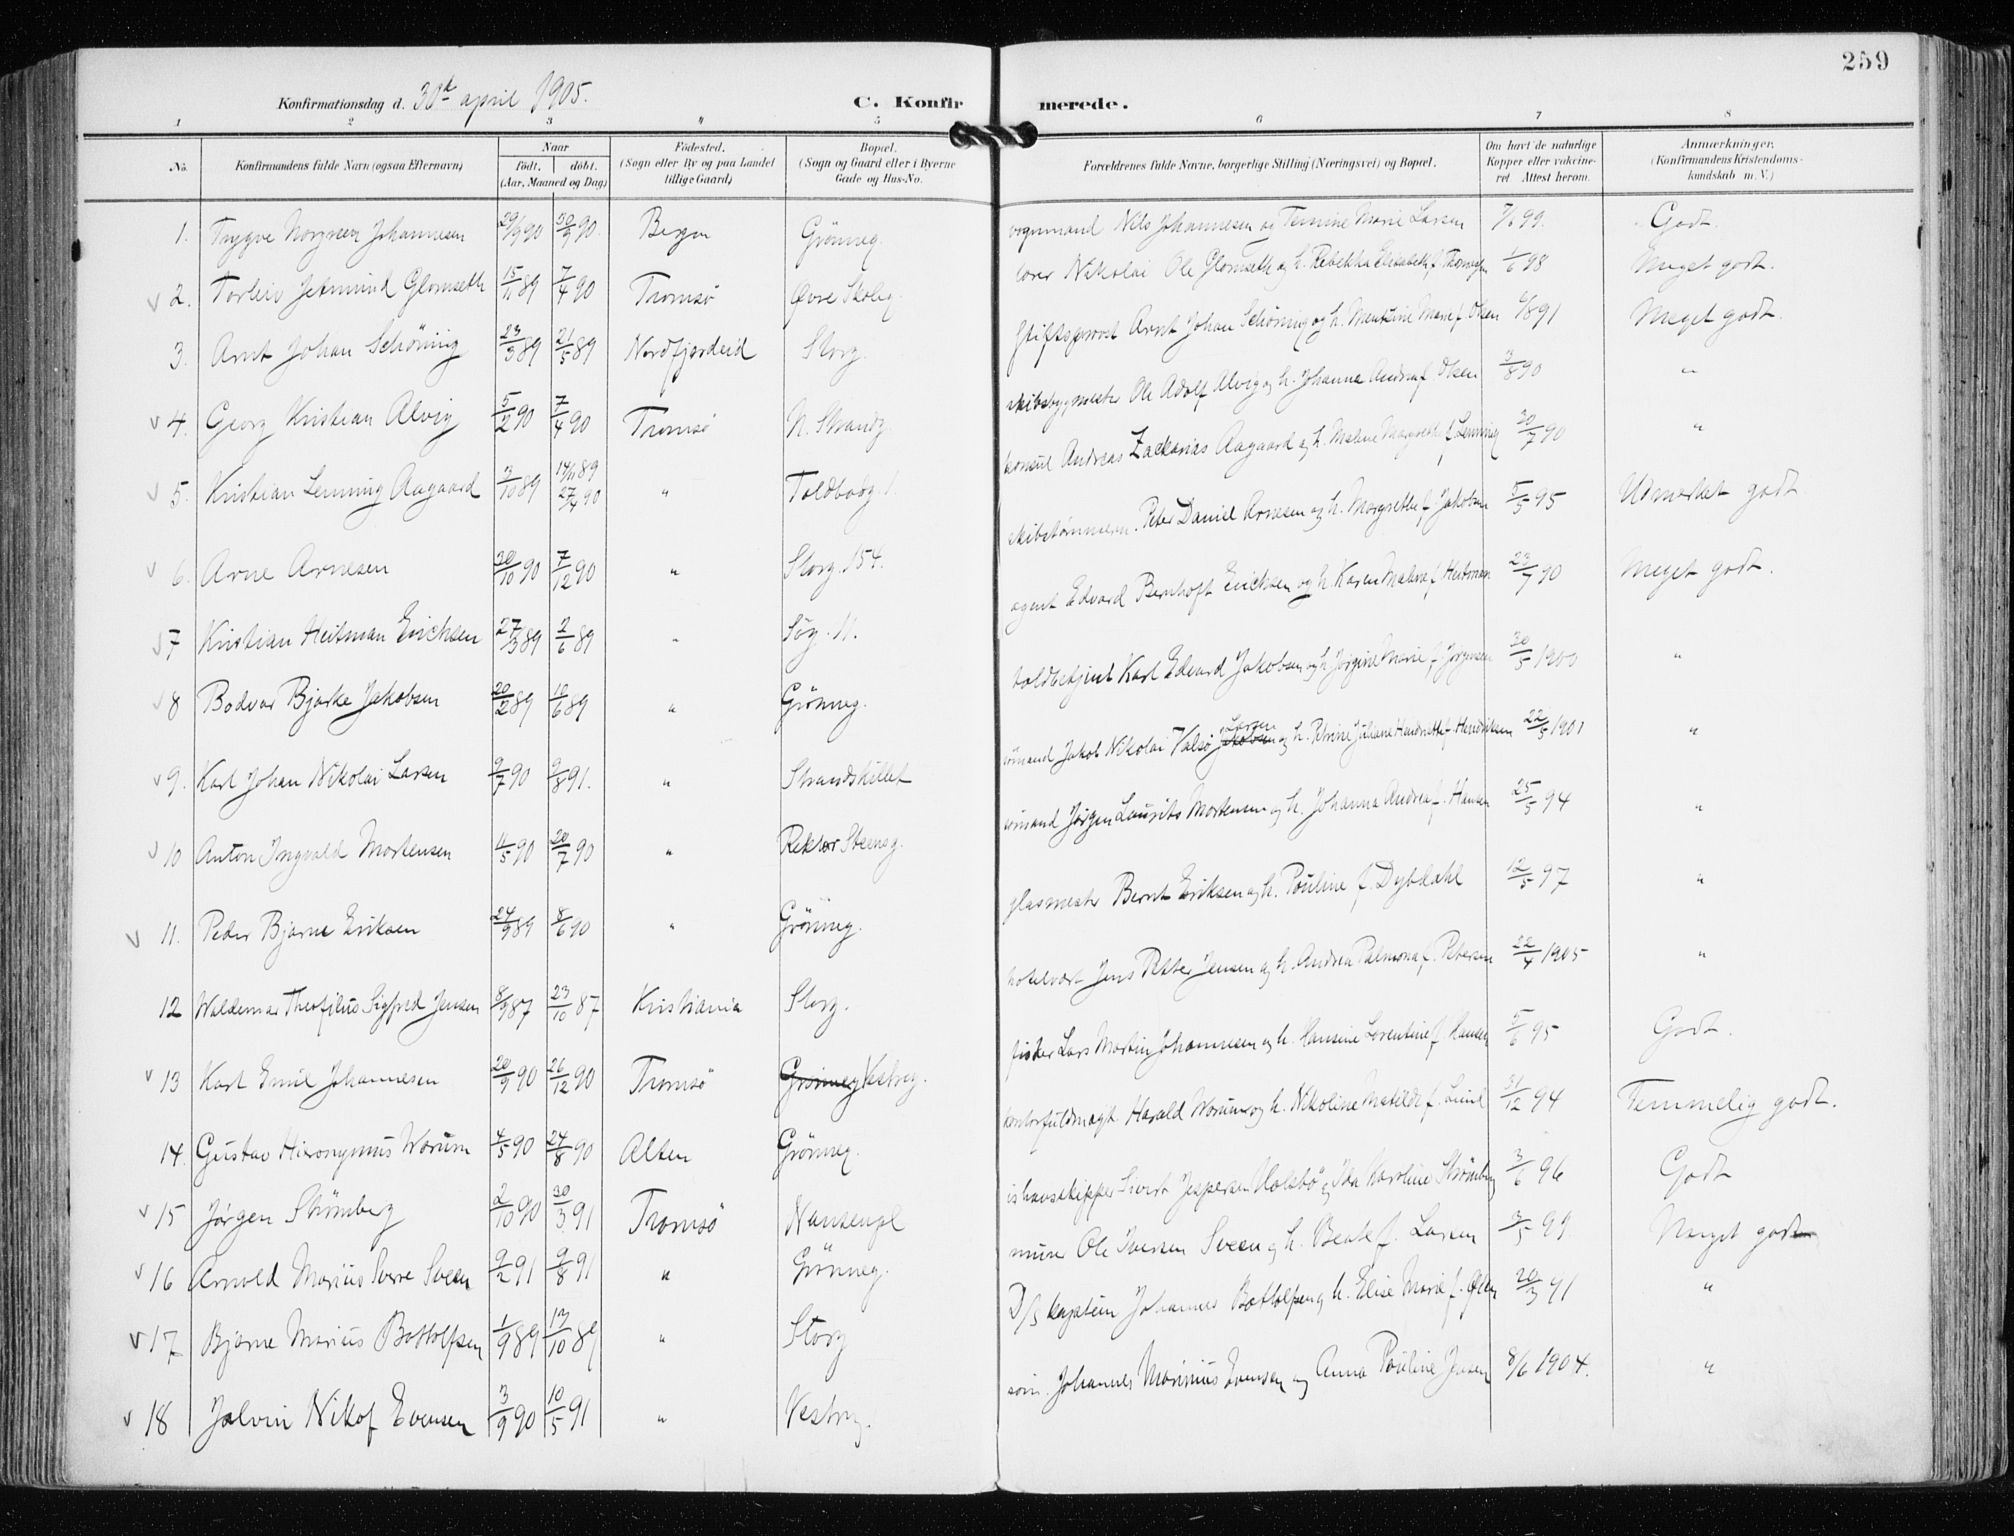 259
Konfirmationsdag d. 30te april 1905.
C. Konfirmerede.
1 2 3 " 5 6 7 8
No. Konfirmandens fulde Navn (ogsaa Efternavn) Naar født, døbt. (Aar, Maaned og Dag) Fødested. (Sogn eller By og paa Landet tillige Gaard) Bopæl. (Sogn og Gaard eller i Byerne Gade og Hus-No. Forældrenes fulde Navne, borgerlige Stilling (Næringsvei) og Bopæl. Om havt de naturlige Kopper eller vakcineret Attest herom. Anmærkninger. (Konfirmandens Kristendomskundskab m. V.)
1. Trygve Norgreen Johannesen 29/9 90 30/9 90. Bergen Grönneg. vognmand Nils Johannesen og Marie Larsen 7/6 99. Godt.
2. Torleiv Jetmund Glomseth 15/11 89 7/4 90 Tromsø Øvre Skoleg. lærer Nikolai Ole Glomseth og h. Rebekka Elisabeth f. 1/6 98 Meget godt.
3. Arnt Johan Schöning 23/3 89 21/5 89 Nordfjordeid Storg. Stiftsprovst Arnt Johan Schöning og h. Marie f. Olsen 6/8 91 Meget godt.
4. Georg Kristian Alvig 5/2 90 7/4 90 Tromsø N. Strandg. skibsbygmester Ole Adolf Alvig og h. Johanna Andrea f. Olsen 3/8 90 "
5. Kristian Lemming Aagaard 3/10 89 14/11 89 27/4 90 " Toldbodg. 1. konsul Andreas Zackarias Aagaard og h. Malene Margrethe f. Lemming 30/7 90 "
6. Arne Arnesen 30/10 90 7/12 90 " Storg. 154. skibstømmerm. Peter Daniel Arnesen og h. Margrethe f. Jakobsen 5/5 95 Udmerket godt
7 Kristian Heitman Erichsen 27/3 89 2/6 89 " Søg. 11. agent Edvard Bernhoft Erichsen og h. Karen Malene f. Heitman 23/7 90 Meget godt.
8 Bodvar Bjarke Jakobsen 20/2 89 10/6 89 " Grönneg. toldbetjent Karl Edvard Jakobsen og h. Jørgine Marie f. Jørgensen 30/5 1900 "
9. Karl Johan Nikolai Larsen 9/7 90 9/8 91. " Strandskillet Jakob Nikolai Valsø Jakobsen Larsen og h. Petrine Juliane Hendrikke f. Hendriksen 22/5 1901 "
10 Anton Ingvald Mortensen 11/5 90 20/7 90 " Rektor Steensg. Jørgen Laurits Mortensen og h. Johanna Andrea f. Hansen 25/5 94 "
11. Peder Bjarne Eriksen 24/9 89 8/6 90 " Grönneg. glasmester Bernt Eriksen og h. Pouline f. Dybdahl 12/5 97 "
12 Waldemar Theofilus Sigfred Jensen 8/9 87 23/10 87 Kristiania Storg. hotelvært Jens Petter Jensen og h. Andrea Palmona f. Petersen 22/4 1905 "
13 Karl Emil Johannesen 20/9 90 26/12 90 Tromsø Grönneg Vestreg. fisker Lars Martin Johannesen og h. Hansine Lorentine f. Hansen 5/6 95 Godt.
14. Gustav Hieronymus Worum 4/5 90 24/8 90 Alten Grönneg. kontorfuldmægt. Harald Worum og h. Nikoline Matilde f. Lund 31/12 94 Temmelig godt.
15 Jørgen Strömberg 2/10 90 30/3 91 Tromsø Nansenpl ishavsskipper Sivert Jespersen Holsbö og Ida Karoline Strömberg 3/6 96 Godt
16 Arnold Marius Sverre Sveen 9/2 91 9/8 91 " Grönneg. murer Ole Iversen Sveen og h. Beate f. Larsen 3/5 99. Meget godt
17 Bjarne Marius Bottolfsen 1/9 89 13/10 89 " Storg D/S kaptein Johannes Bottolfsen og h. Elise Marie f. Olsen 20/3 91 "
18 Jalvin Nikof Evensen 3/9 90 10/5 91 " Vestreg. Johannes Marinius Evensen og Anna Pouline Jensen 8/6 1904. "